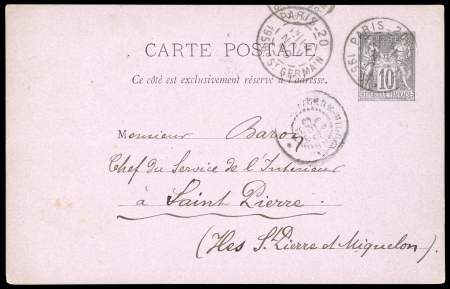 PARIS 20
ST GERMAIN
PARIS 20
CARTE POSTALE
Ce côté est exclusivement réservé à l'adresse.
10
Monsieur Baron
Chef du Service de l'Intérieur
à Saint Pierre
(Iles St Pierre et Miquelon).